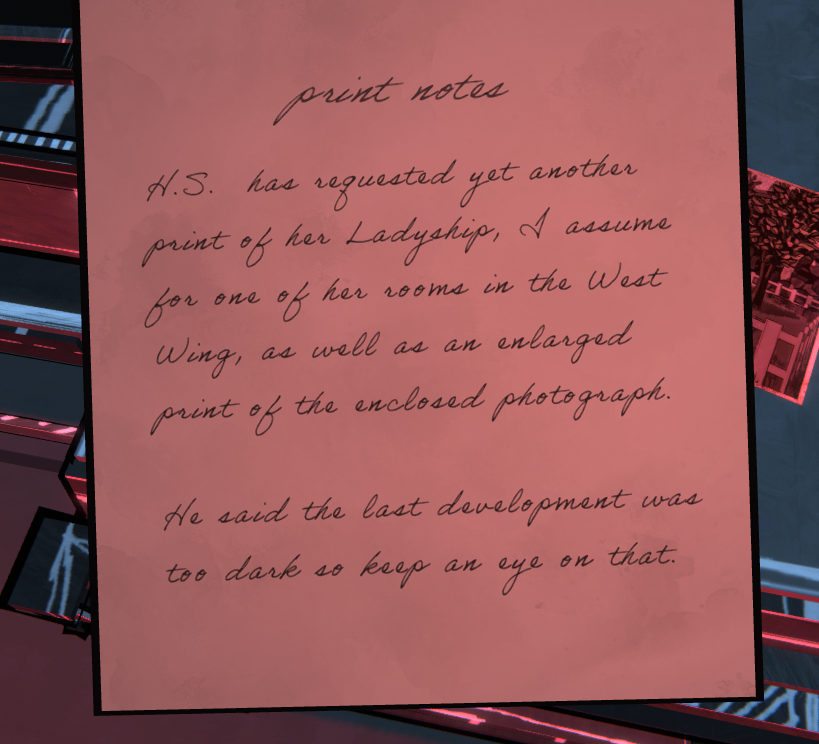 print notes
H.S. has requested yet another
print of her Ladyship, I assume
for one of her rooms in the West
Wing, as well as an enlarged
print of the enclosed photograph.
He said the last development was
too dark so keep an eye on that.